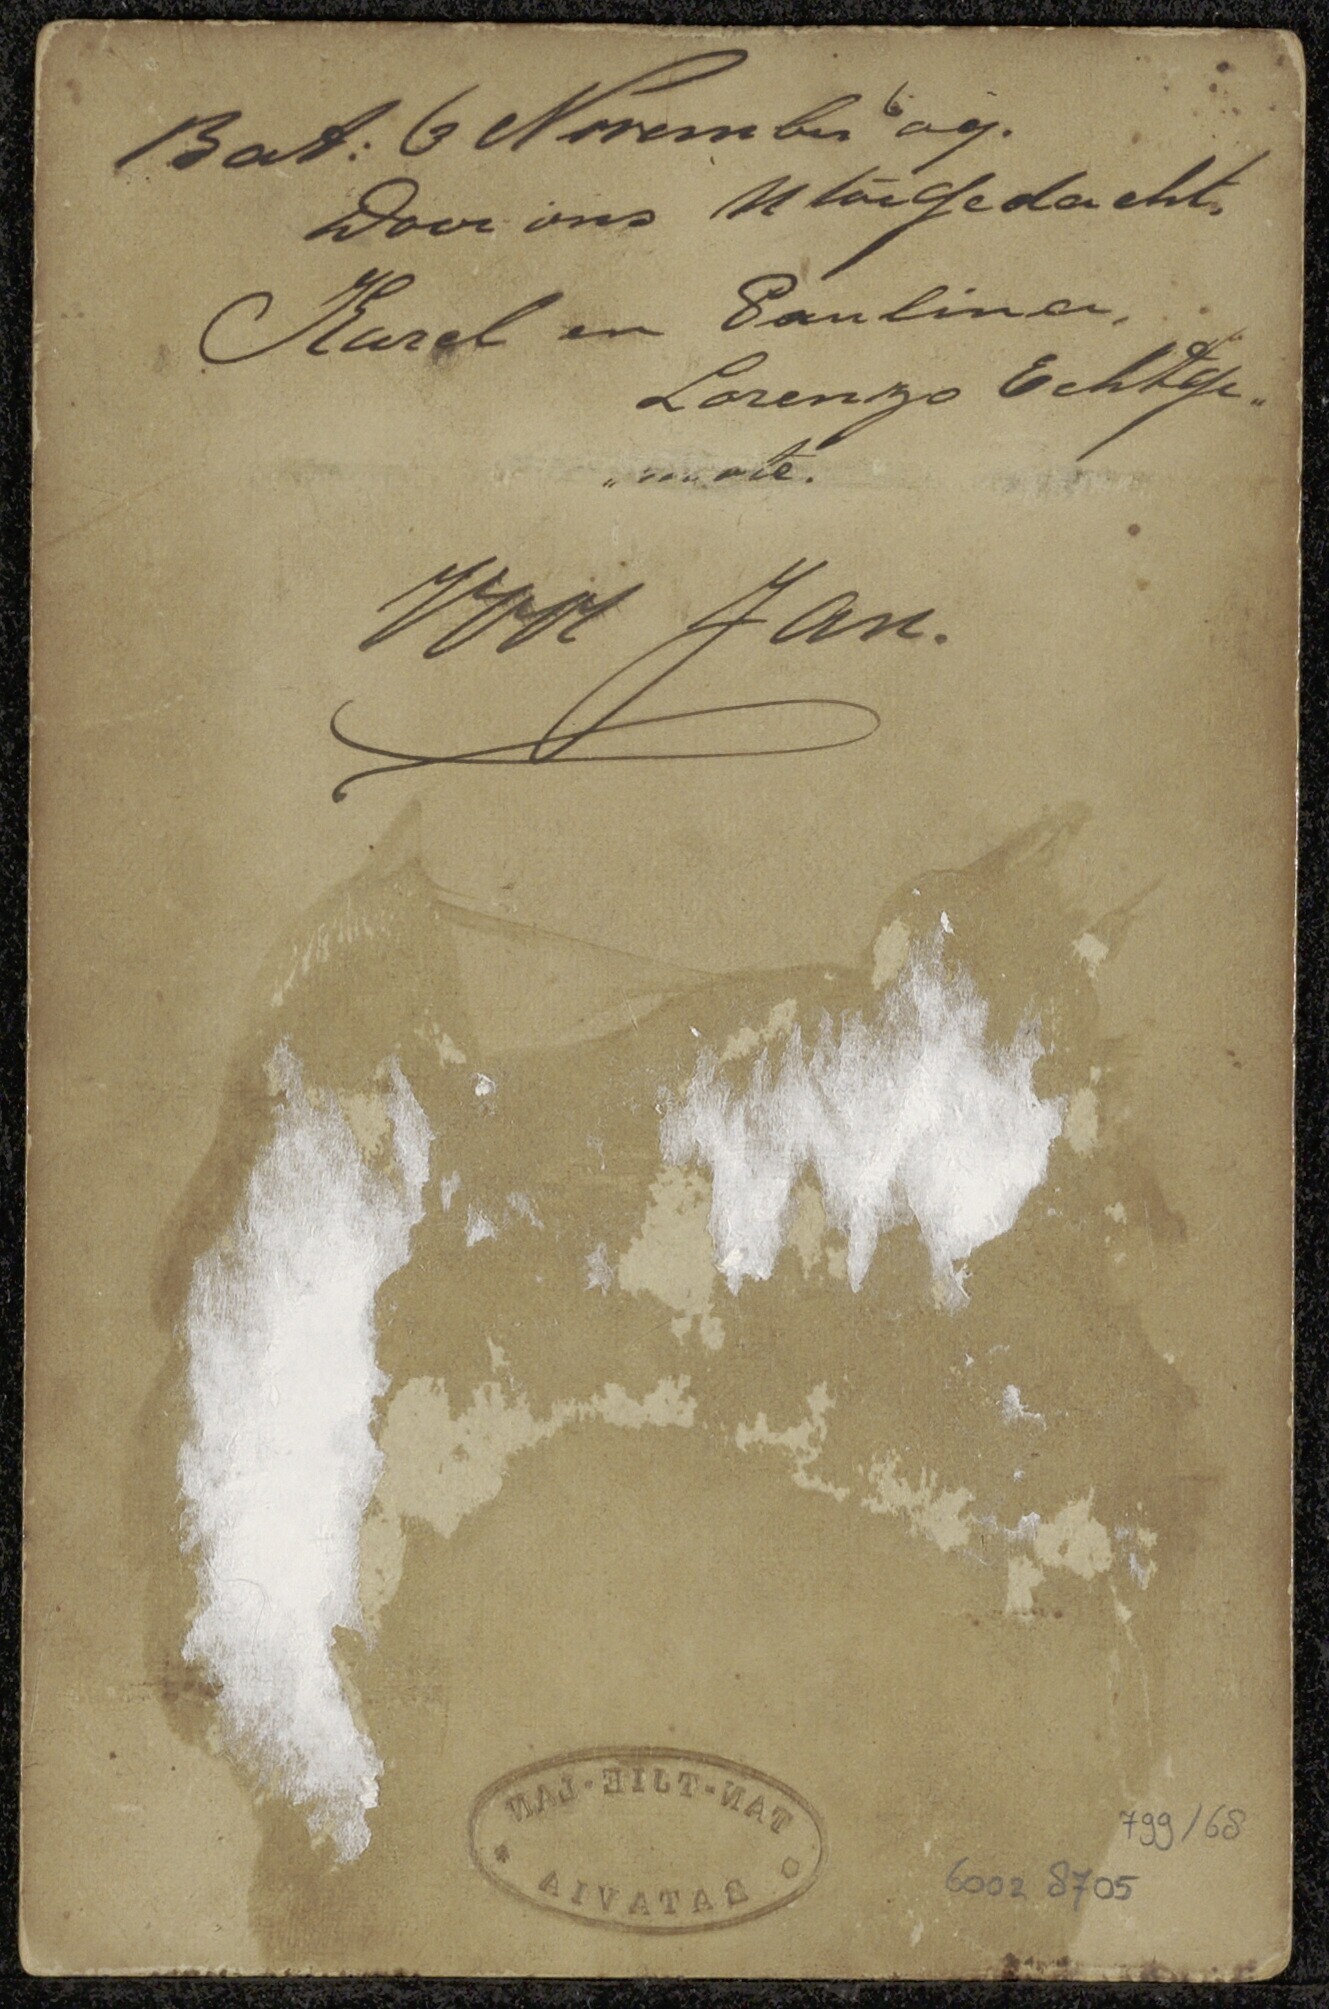 Bat: 6 November 09.
Door ons Uitoigedacht.
Karel en Paulina,
Lorenzo Echtge„
„note.
Voor Jan.
TAN-TJIE-LAN
BATAVIA
799/68
6002 8705